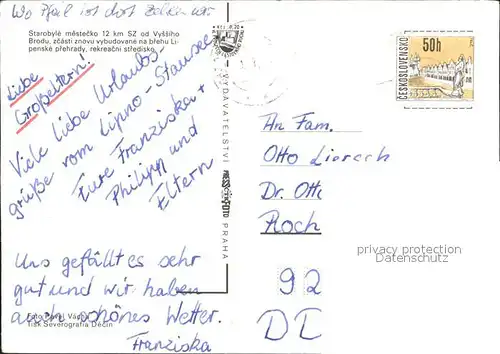 Wo Pfal ist dort Zelten wir
Starobylé městečko 12 km SZ od Vyššího
Brodu, zčásti znovu vybudované na břehu Li-
penské přehrady, rekreační středisko.
Liebe
Großeltern!
Viele liebe Urlaubs-
grüße vom Lipno-Stausee
Eure Franziska +
Philipp und
Eltern
Uns gefällt es sehr
gut und wir haben
auch schönes Wetter.
Franziska
Foto Pavel
Tisk Severografia Děčín
VYDAVATELSTVÍ PRESSFOTO PRAHA
ČESKOSLOVENSKO
50h
An Fam.
Otto
Dr. Otto
Roch
92
DD
privacy protection
Datenschutz